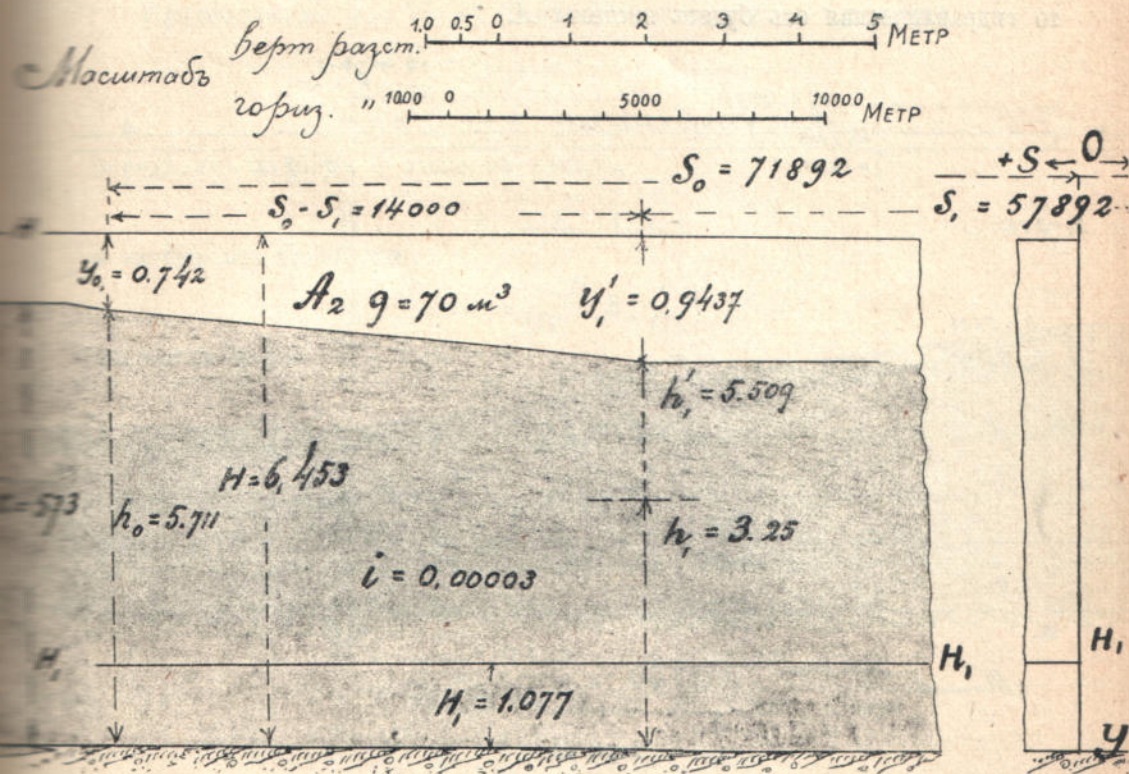 Масштабъ
верт разст. 1.0 0.5 0 1 2 3 4 5 МЕТР
гориз. " 1000 0 5000 10000 МЕТР
+S ← 0
S₀ = 71892
S₀ - S₁ = 14000
S₁ = 57892
y₀ = 0.742
A₂ q = 70 м³
y₁' = 0.9437
h₁' = 5.509
H = 6,453
= 573
h₀ = 5.711
h₁ = 3.25
i = 0,00003
H₁
H₁
H₁
H₁ = 1.077
y